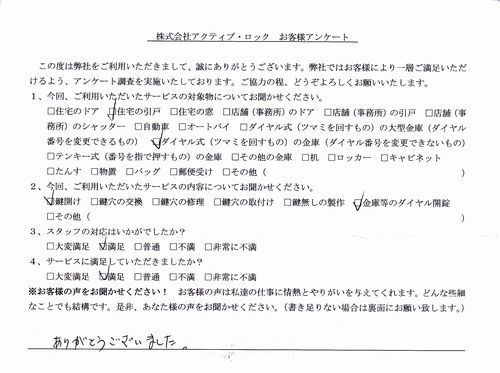 株式会社アクティブ・ロック　お客様アンケート
この度は弊社をご利用いただきまして、誠にありがとうございます。弊社ではお客様により一層ご満足いただ
けるよう、アンケート調査を実施いたしております。ご協力の程、どうぞよろしくお願いいたします。
1、今回、ご利用いただいたサービスの対象物についてお聞かせください。
□住宅のドア　☑住宅の引戸　□住宅の窓　□店舗（事務所）のドア　□店舗（事務所）の引戸　□店舗（事
務所）のシャッター　□自動車　□オートバイ　□ダイヤル式（ツマミを回すもの）の大型金庫（ダイヤル
番号を変更できるもの）　☑ダイヤル式（ツマミを回すもの）の金庫（ダイヤル番号を変更できないもの）
□テンキー式（番号を指で押すもの）の金庫　□その他の金庫　□机　□ロッカー　□キャビネット
□たんす　□物置　□バッグ　□郵便受け　□その他（　　　　　　　　　　　　　　　　）
2、今回、ご利用いただいたサービスの内容についてお聞かせください。
☑鍵開け　□鍵穴の交換　□鍵穴の修理　□鍵穴の取付け　□鍵無しの製作　☑金庫等のダイヤル開錠
□その他（　　　　　　　　　　　　　　　　　　　　　　　　　　　　）
3、スタッフの対応はいかがでしたか？
□大変満足　☑満足　□普通　□不満　□非常に不満
4、サービスに満足していただきましたか？
□大変満足　☑満足　□普通　□不満　□非常に不満
※お客様の声をお聞かせください！　お客様の声は私達の仕事に情熱とやりがいを与えてくれます。どんな些細
なことでも結構です。是非、あなた様の声をお聞かせください。（書き足りない場合は裏面にお願い致します。）
ありがとうございました。